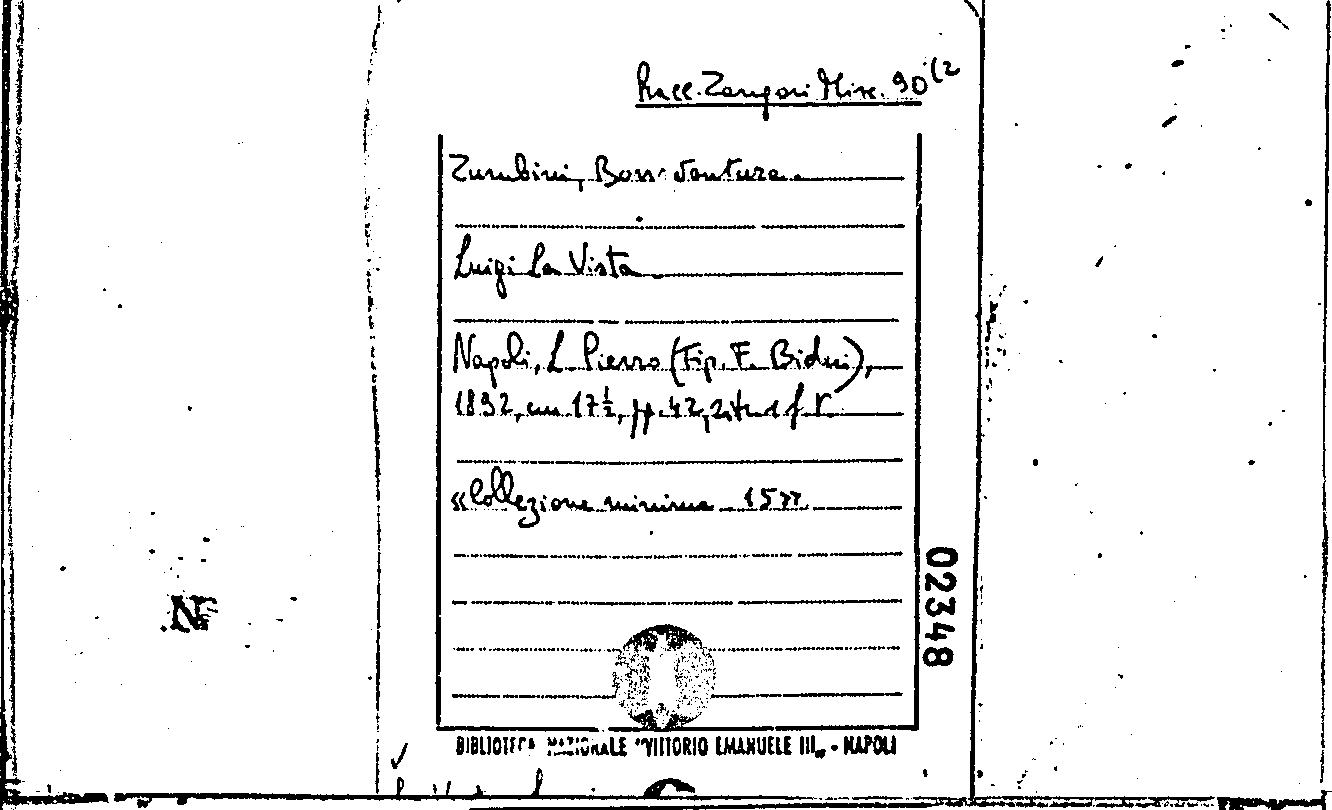 Racc. Zangari Misc. 90 (2
Zumbini, Bonaventura
Luigi La Vista
Napoli, L. Pierro (Tip. F. Bideri),
1892, cm 17½, pp. 42, 1 f. r.
«Collezione minima 15»
02348
BIBLIOTECA NAZIONALE "VITTORIO EMANUELE III„ - NAPOLI